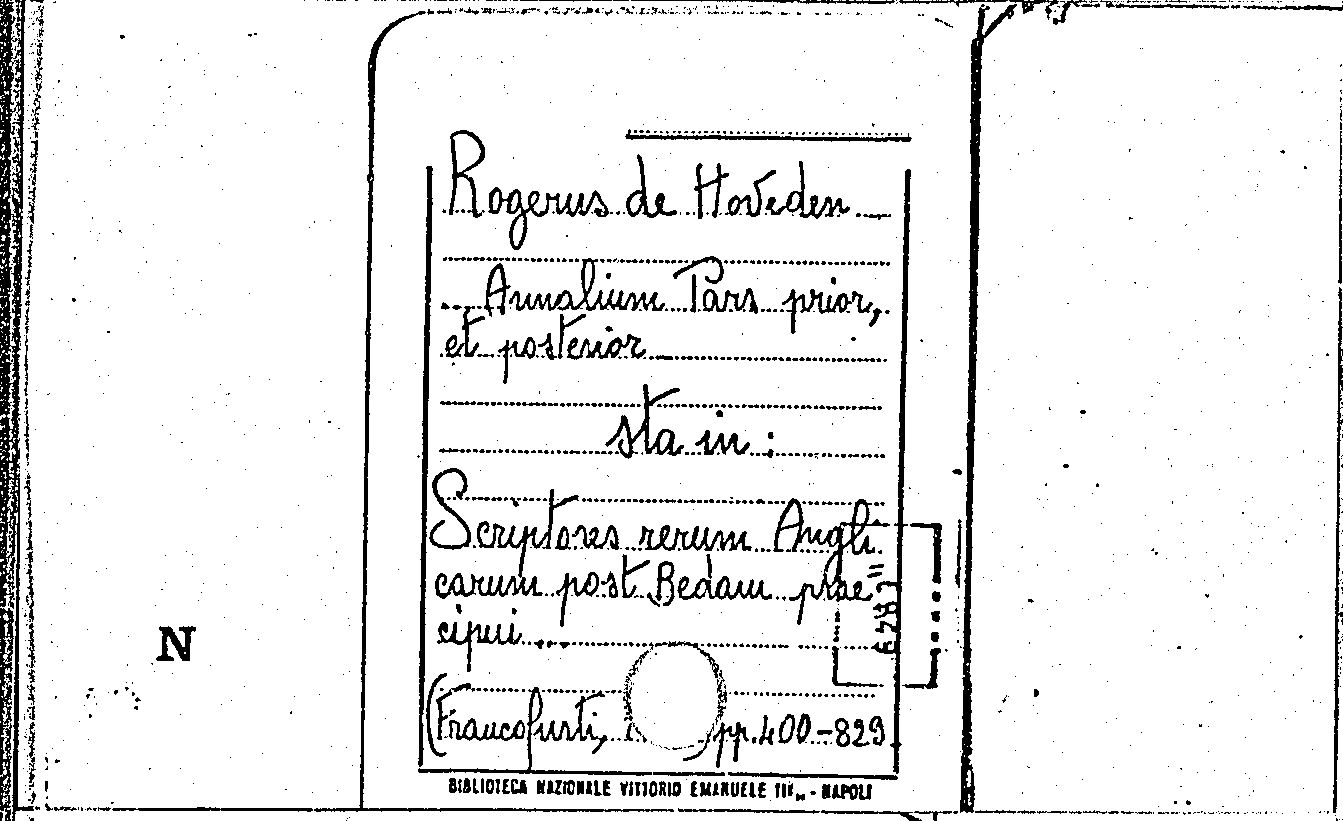 Rogerus de Hoveden
Annalium Pars prior,
et posterior
sta in:
Scriptores rerum Angli
carum post Bedam prae=
cipui...
(Francofurti, ) pp. 400-829.
BIBLIOTECA NAZIONALE VITTORIO EMANUELE III - NAPOLI
N